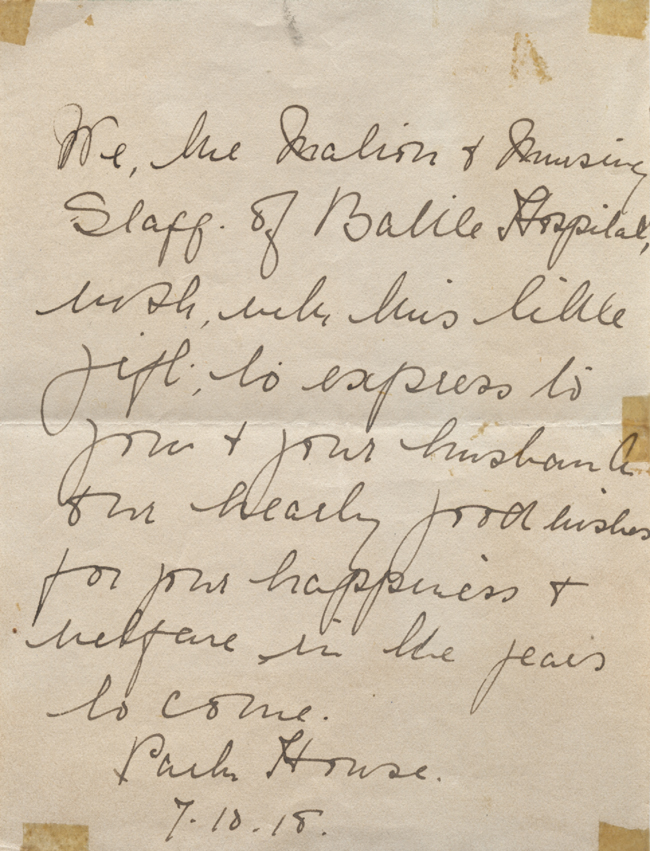 We, the Matron & Nursing
Staff. of Battle Hospital,
wish, with this little
gift, to express to
you & your husband
our hearty good wishes
for your happiness &
welfare in the years
to come.
Park House.
7.10.18.